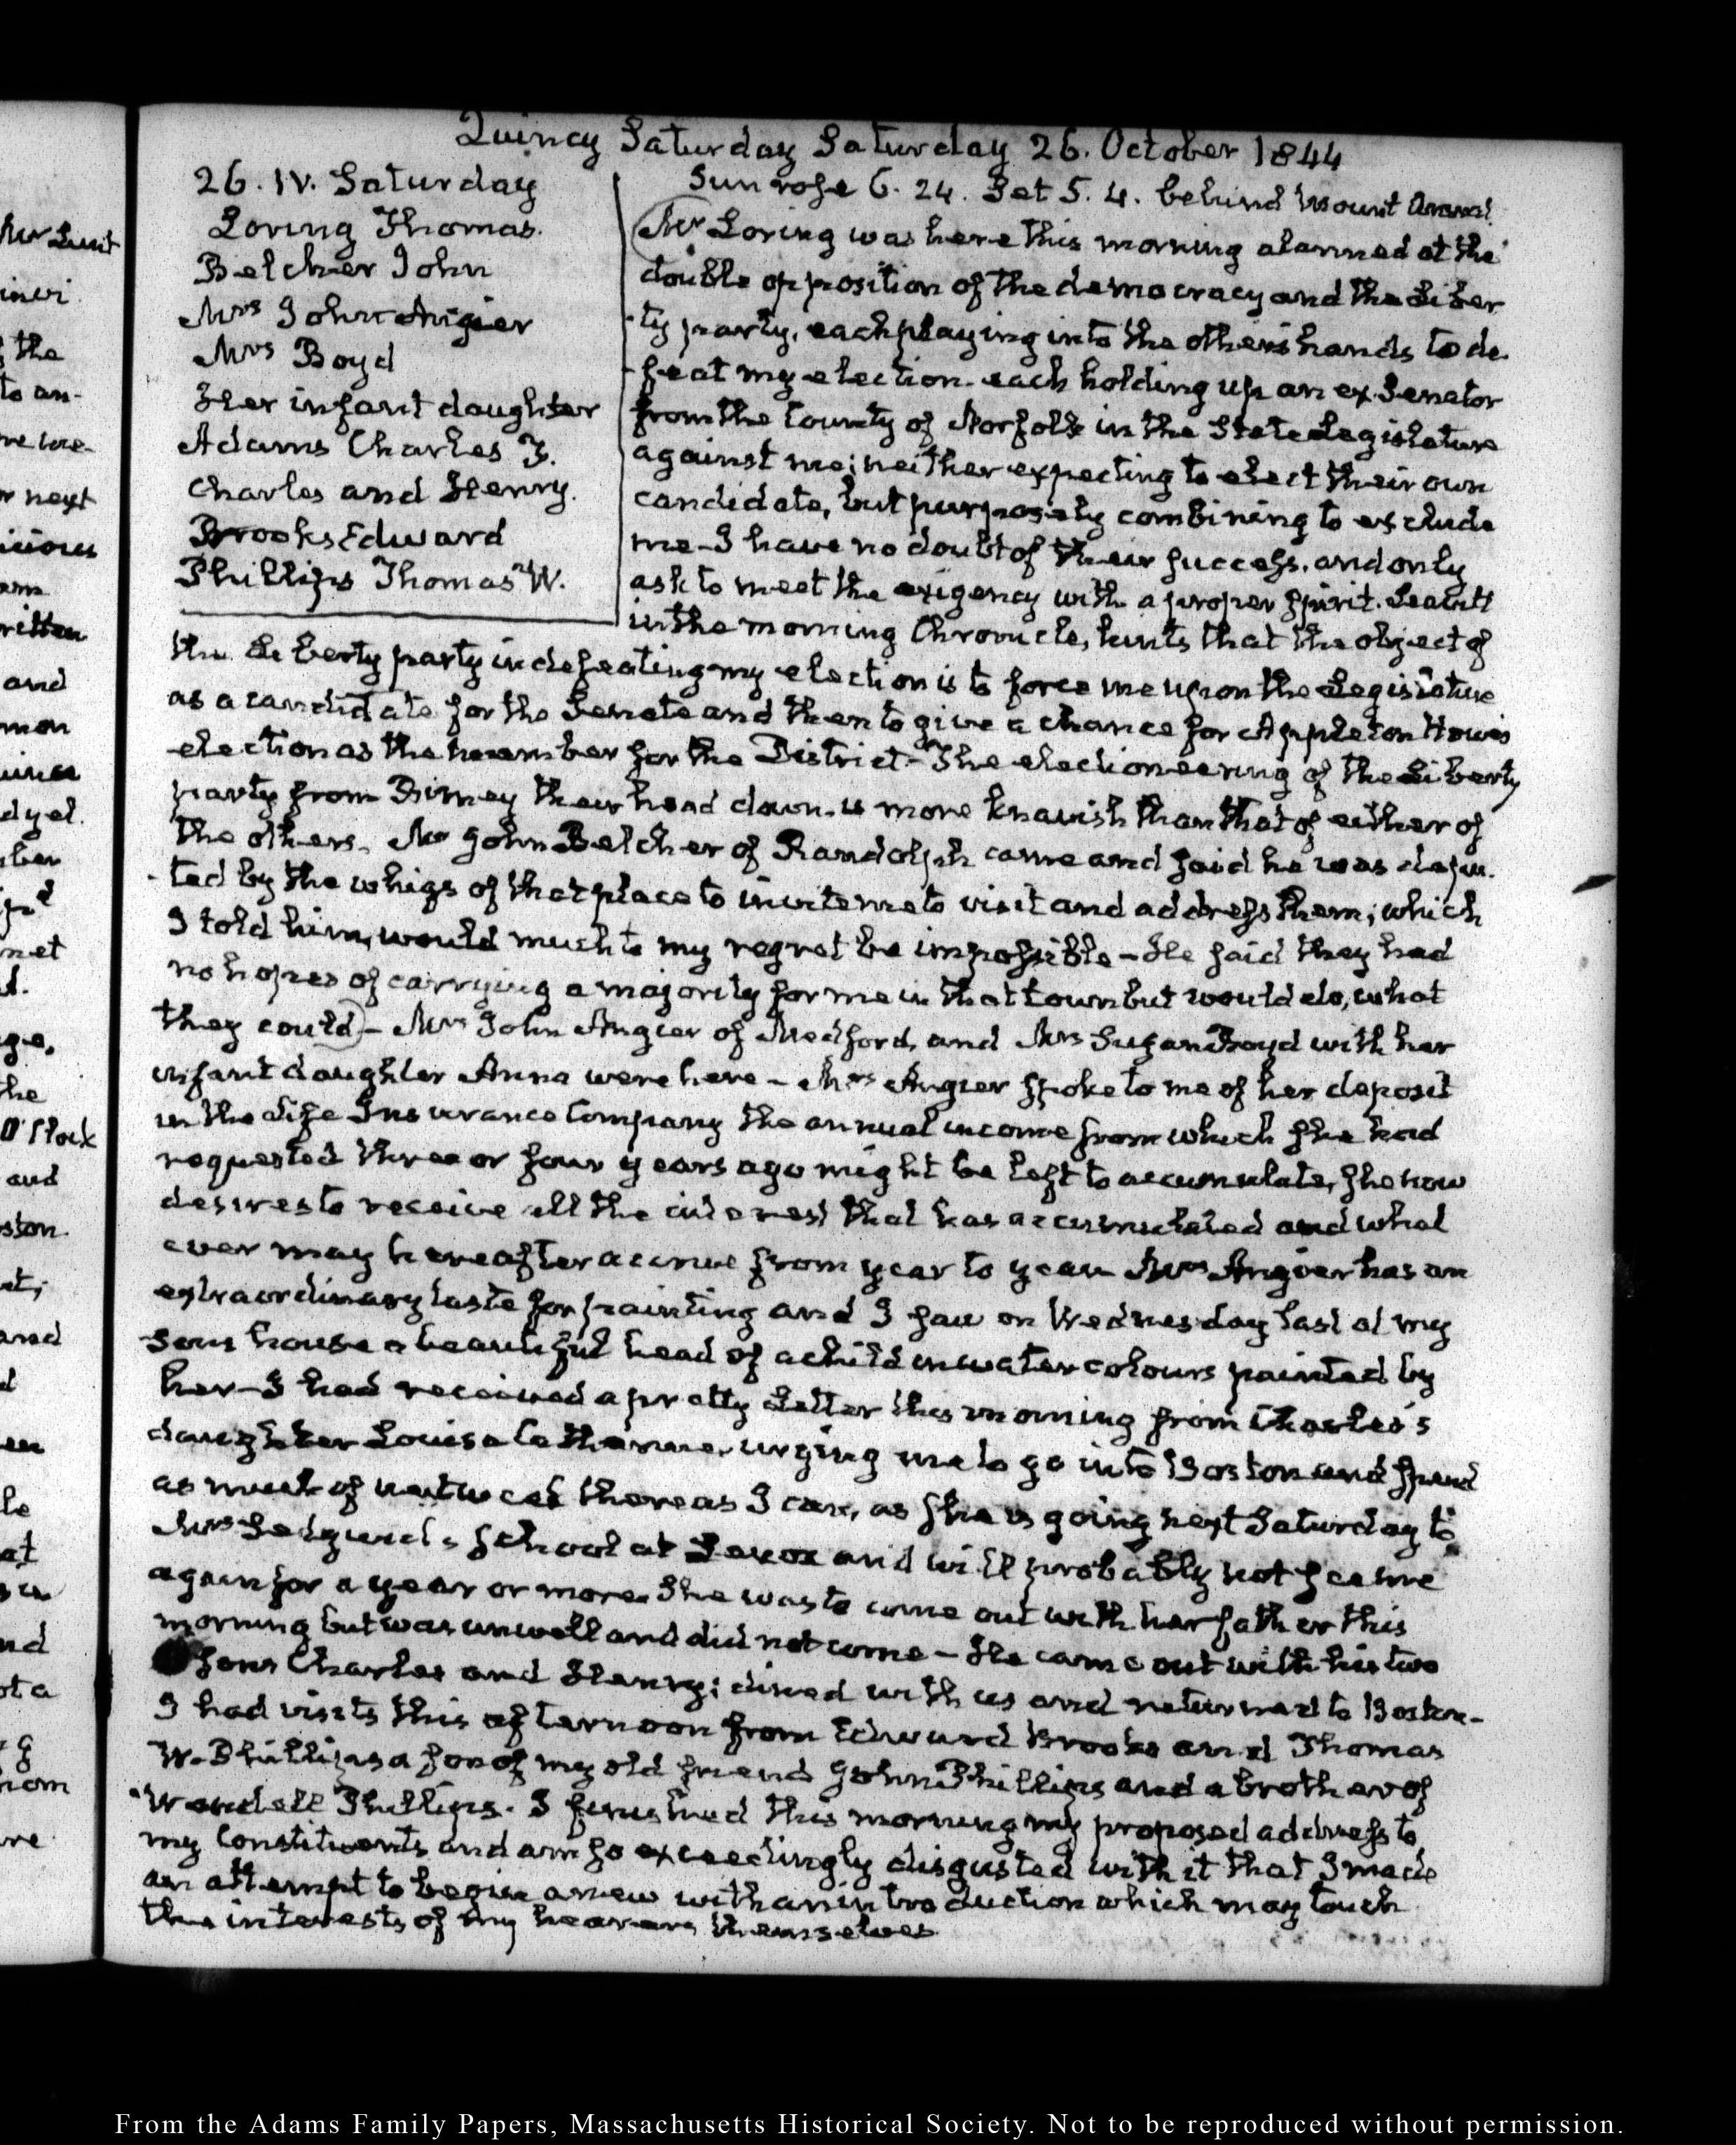 Quincy Saturday Saturday 26. October 1844
26. IV. Saturday
Loring Thomas.
Belcher John
Mrs John Angier
Mrs Boyd
Her infant daughter
Adams Charles F.
Charles and Henry.
Brooks Edward
Phillips Thomas W.
Sun rose 6. 24. Set 5. 4. behind Mount
Mr Loring was here this morning alarmed at the
double opposition of the democracy and the Liber
-ty party, each playing into the others hands to de-
-feat my election. each holding up an ex-Senator
from the County of Norfolk in the State Legislature
against me; neither expecting to elect their own
candidate, but purposely combining to exclude
me - I have no doubt of their success, and only
ask to meet the exigency with a proper spirit. Leavitt
in the morning Chronicle, hints that the object of
the Liberty party in defeating my election is to force me upon the Legislature
as a candidate for the Senate and then to give a chance for Appleton Howe's
election as the member for the District - The electioneering of the Liberty
party from Birney their head down. is more knavish than that of either of
the others. Mr John Belcher of Randolph came and said he was depu-
-ted by the whigs of that place to invite me to visit and address them; which
I told him, would much to my regret be impossible - He said they had
no hopes of carrying a majority for me in that town but would do, what
they could - Mrs John Angier of Medford, and Mrs Susan Boyd with her
infant daughter Anna were here - Mrs Angier spoke to me of her deposit
in the Life Insurance Company the annual income from which she had
requested three or four years ago might be left to accumulate, she now
desires to receive all the interest that has accumulated and what
ever may hereafter accrue from year to year Mrs Angier has an
extraordinary taste for painting and I saw on Wednesday last at my
Sons house a beautiful head of a child in water colours painted by
her - I had received a pretty Letter this morning from Charles's
daughter Louisa Catherine, urging me to go into Boston and spend
as much of next week there as I can, as she is going next Saturday to
Mrs Sedgwick's school at Lenox and will probably not see me
again for a year or more. She was to come out with her father this
morning but was unwell and did not come - He came out with his two
sons Charles and Henry; dined with us and returned to Boston -
I had visits this afternoon from Edward Brooks and Thomas
W. Phillips a son of my old friend John Phillips and a brother of
Wendell Phillips. I finished this morning my proposed address to
my Constituents and am so exceedingly disgusted with it that I made
an attempt to begin anew with an introduction which may touch
the interests of my hearers themselves
From the Adams Family Papers, Massachusetts Historical Society. Not to be reproduced without permission.